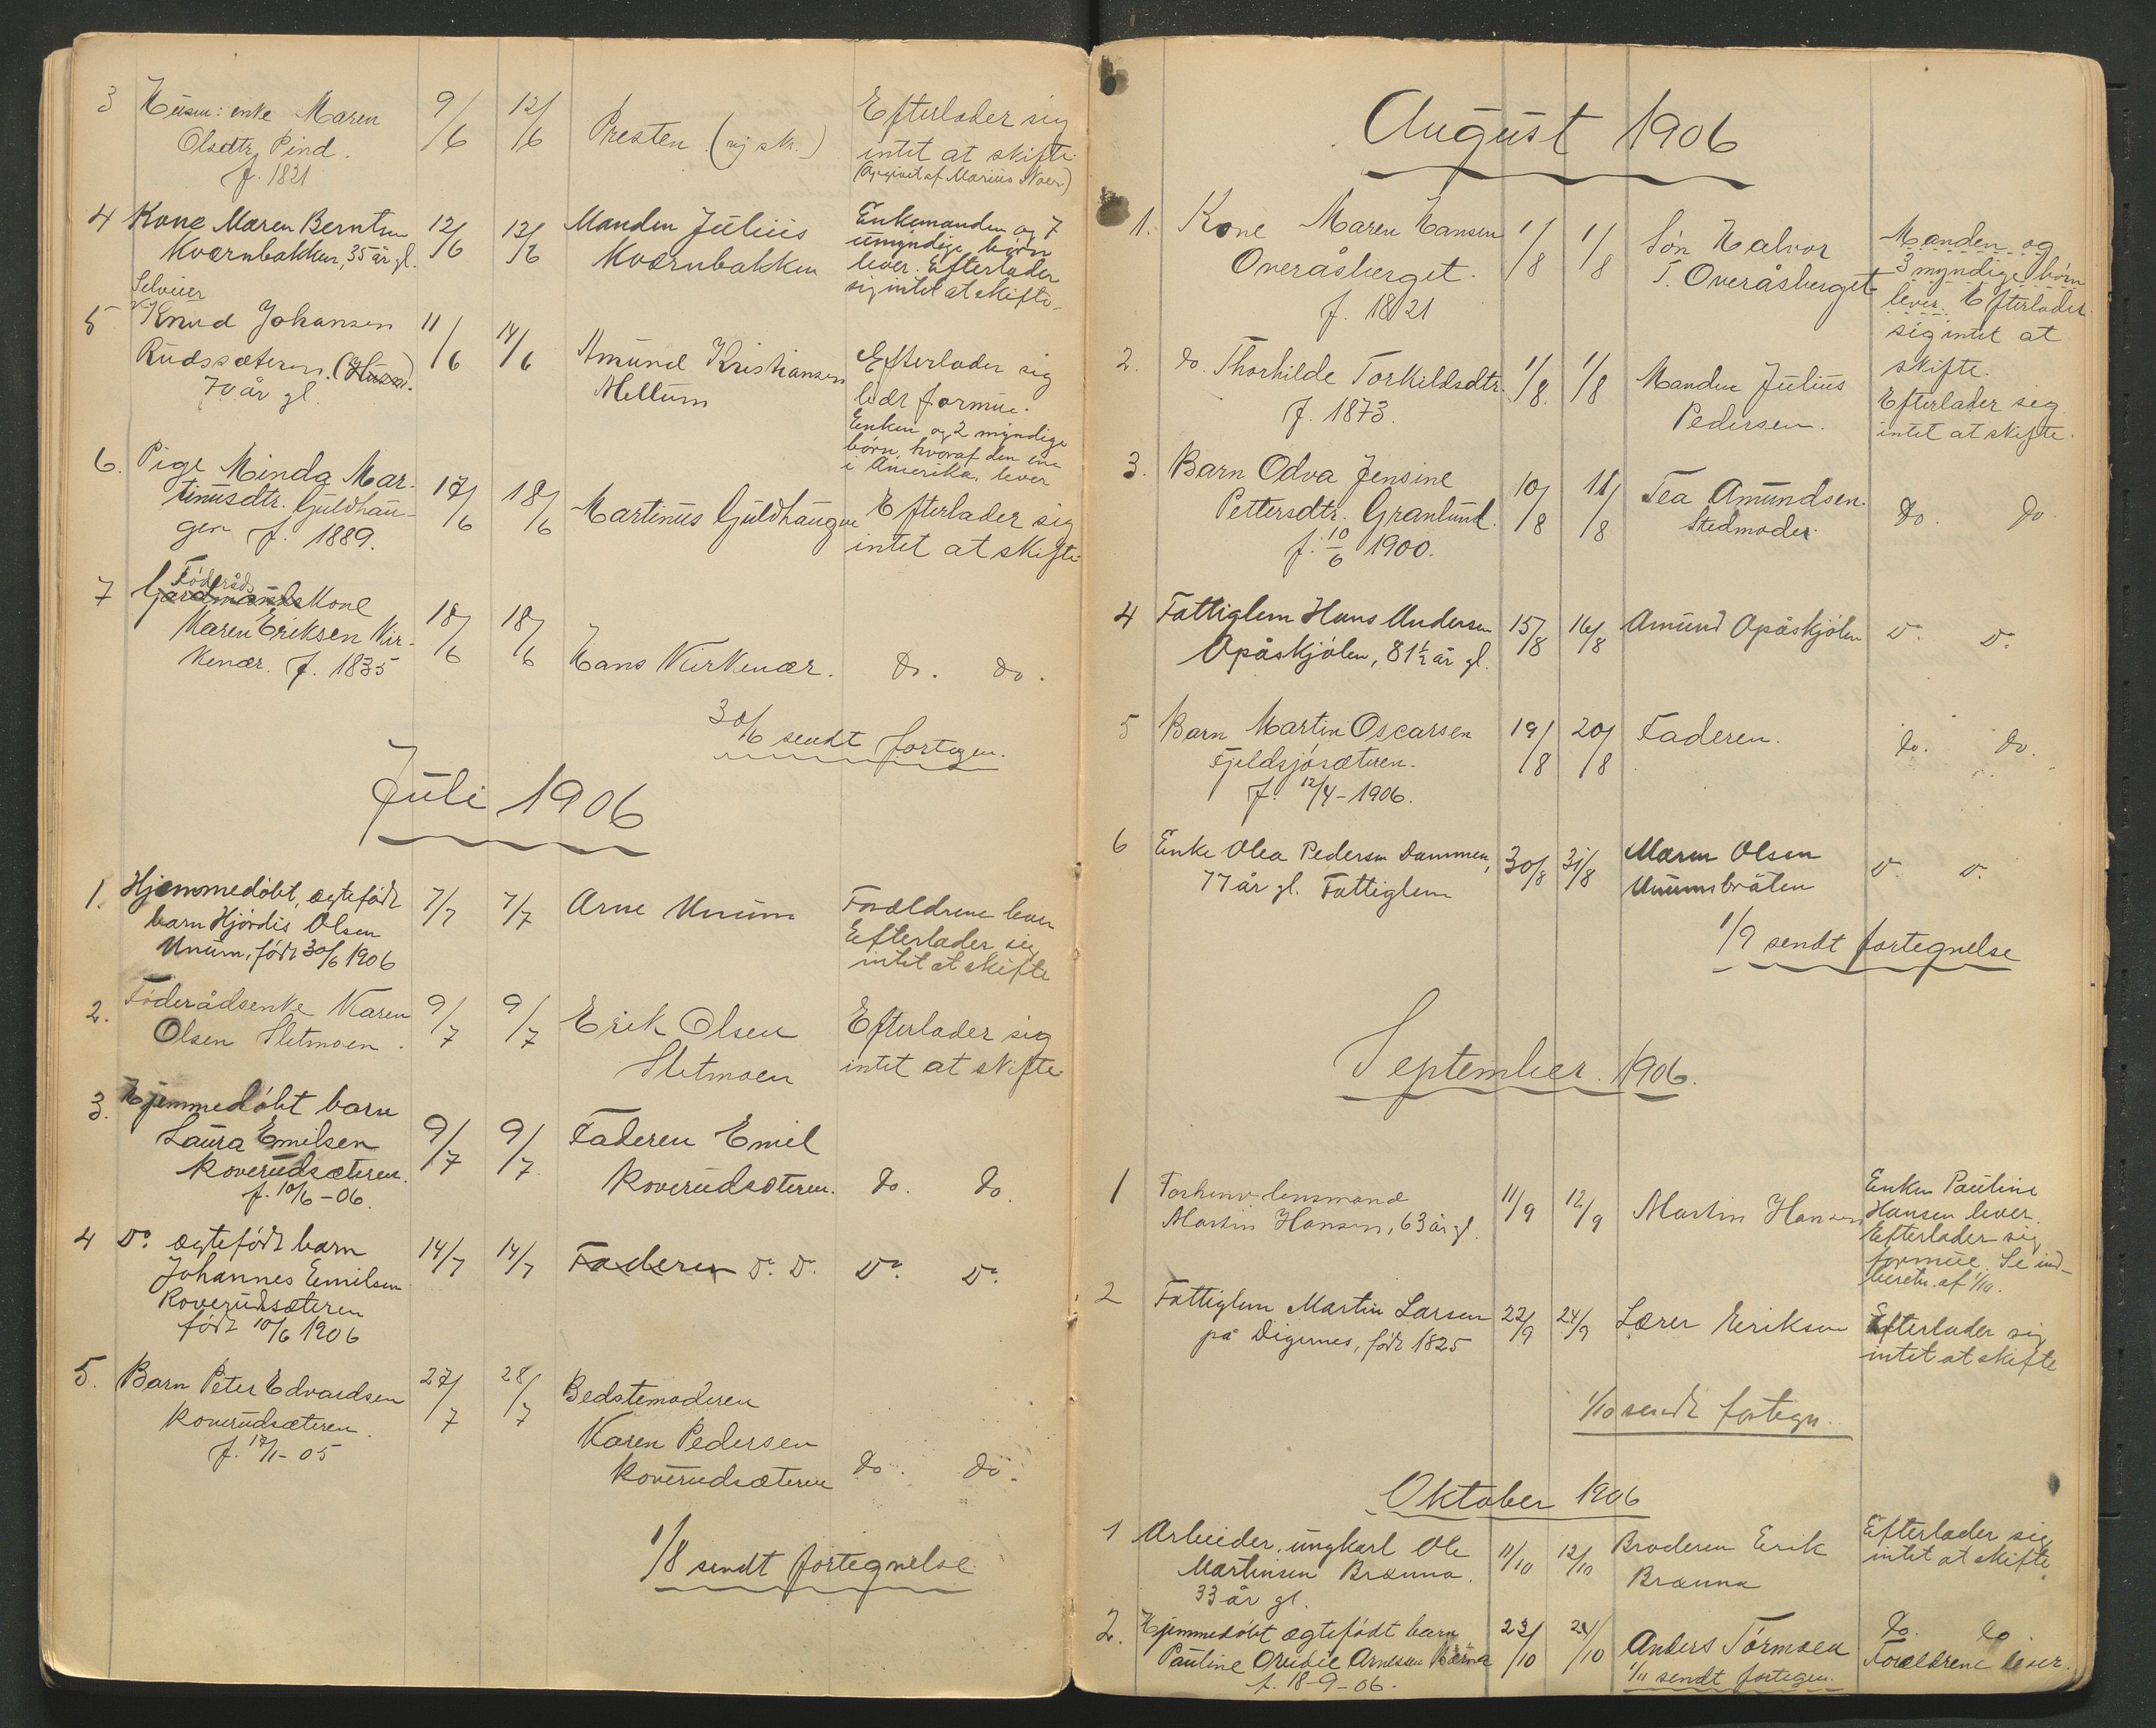 3 Husm: enke Maren 9/6 12/6 Presten (ej sk.) Efterlader sig
Olsdtr. Pind. intet at skifte.
f. 1821 (Opgivet af Marius Noer)
4 Kone Maren Berntsen 12/6 13/6 Manden Julius Enkemanden og 7
Kværnbakken, 35 år gl. Kværnbakken umyndige børn
lever. Efterlader
sig intet at skifte.
Selveier
5 Knud Johansen 11/6 14/6 Amund Kristiansen Efterlader sig
Rudssæteren. (Husm). Mellum lidt formue.
70 år gl. Enken og 2 myndige
børn, hvoraf den ene
i Amerika, lever
6. Pige Minda Mar- 17/6 18/6 Martinus Guldhaugen Efterlader sig
tinusdtr. Guldhau- intet at skifte
gen f. 1889.
Føderåds
7 Gardmands Kone 18/6 18/6 Hans Kirkenær. do. do.
Maren Eriksen Kir-
kenær. f. 1835
30/6 sendt fortegn.
Juli 1906
1. Hjemmedøbt, ægtefødt 7/7 7/7 Arne Unum Forældrene lever
barn Hjørdis Olsen Efterlader sig
Unum, født 30/6 1906 intet at skifte
2. Føderådsenke Karen 9/7 9/7 Erik Olsen Efterlader sig
Olsen Sletmoen. Sletmoen intet at skifte
3. Hjemmedøbt barn 9/7 9/7 Faderen Emil
Laura Emilsen Roverudsæteren. do. do.
Roverudsæteren.
f. 10/6 - 06.
4 Do. ægtefødt barn 14/7 14/7 Faderen Do. Do. Do. Do.
Johannes Emilsen
Roverudsæteren
født 10/6 1906
5. Barn Peter Edvardsen 27/7 28/7 Bedstemoderen
Roverudsæteren. Karen Pedersen
Roverudsæteren do. do.
1/8 sendt fortegnelse
August 1906
1. Kone Maren Hansen 1/8 1/8 Søn Halvor Manden og
Overåsberget. T. Overåsberget 3 myndige børn
f. 1821 lever. Efterlader
sig intet at
skifte.
2. do. Thorhilde Torkildsdtr. 1/8 1/8 Manden Julius Efterlader sig
f. 1873. Pedersen. intet at skifte.
3. Barn Odva Jensine 10/8 11/8 Tea Amundsen. do. do
Pettersdtr. Granlund. Stedmoder
f. 10/6 1900.
4 Fattiglem Hans Andersen 15/8 16/8 Amund Opåskjølen Do. Do.
Opåskjølen, 81½ år gl.
5 Barn Martin Oscarsen 19/8 20/8 Faderen. do. do.
Fjeldsjøsæteren.
f. 12/4 - 1906.
6 Enke Olea Pedersen Dammen, 30/8 31/8 Maren Olsen Do. Do.
77 år gl. Fattiglem Unumsbråten
1/9 sendt fortegnelse
September 1906.
1 Forhenv. lensmand 11/9 12/9 Martin Hansen Enken Pauline
Martin Hansen, 63 år gl. Hansen lever.
Efterlader sig
formue. Se ind-
beretn. af 1/10.
2 Fattiglem Martin Larsen 22/9 24/9 Lærer Eriksen Efterlader sig
på Digernes, født 1825 intet at skifte
1/10 sendt fortegn.
Oktober 1906
1 Arbeider, ungkarl Ole 11/10 12/10 Broderen Erik Efterlader sig
Martinsen Brænna. Brænna intet at skifte.
33 år gl.
2. Hjemmedøbt ægtefødt barn 23/10 24/10 Anders Tørmoen do. do
Pauline Arnesen Forældrene lever.
f. 18-9-06. 1/11 sendt fortegn.